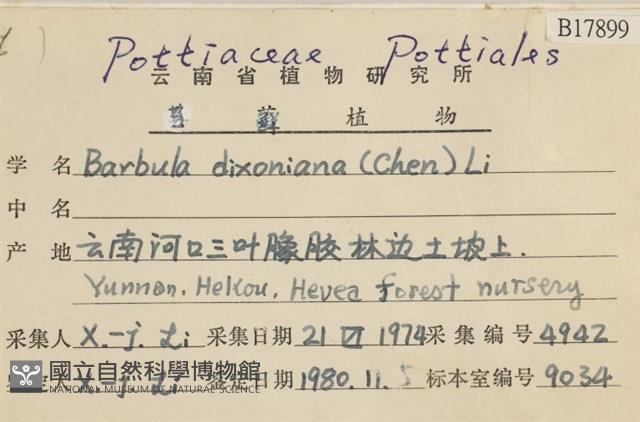 B17899
Pottiaceae Pottiales
云南省植物研究所
苔藓植物
学名 Barbula dixoniana (Chen) Li
中名
产地 云南河口三叶橡胶林边土坡上.
Yunnan. Hekou. Hevea forest nursery
采集人 X.-j. Li 采集日期 21 VI 1974 采集编号 4942
X.-j. Li 定日期 1980.11.5 标本室编号 9034
國立自然科學博物館
NATIONAL MUSEUM OF NATURAL SCIENCE